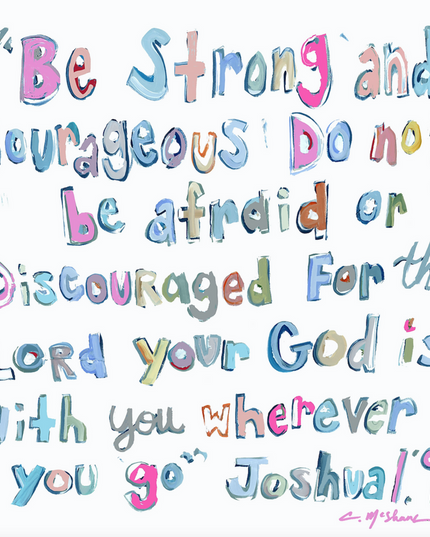 "Be Strong and
courageous! Do not
be afraid or
Discouraged For the
Lord your God is
with you wherever
you go" Joshua 1:9
C. McShane